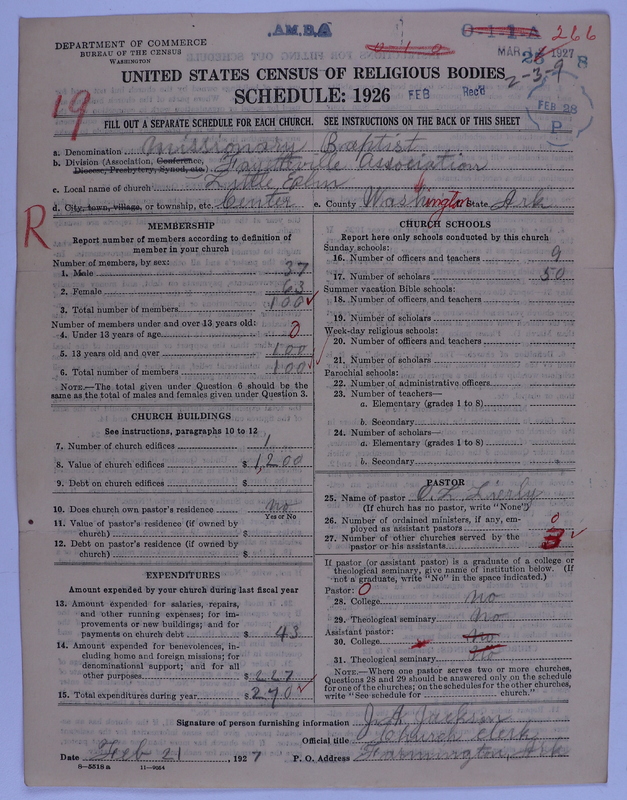 .AM.BA
DEPARTMENT OF COMMERCE
BUREAU OF THE CENSUS
WASHINGTON
0 1 2
0-1 1 A
266
MAR 1927
28 8
2-3-9
UNITED STATES CENSUS OF RELIGIOUS BODIES
SCHEDULE: 1926
FEB Rec'd
FEB 28
P
19
FILL OUT A SEPARATE SCHEDULE FOR EACH CHURCH. SEE INSTRUCTIONS ON THE BACK OF THIS SHEET
a. Denomination Missionary Baptist
b. Division (Association, Conference, Diocese, Presbytery, Synod, etc.) Fayetteville Association
c. Local name of church Little Elm
d. City, town, village, or township, etc. Center e. County Washington State Ark
R
MEMBERSHIP
Report number of members according to definition of
member in your church
Number of members, by sex:
1. Male 37
2. Female 63
3. Total number of members 100
Number of members under and over 13 years old:
4. Under 13 years of age 0
5. 13 years old and over 100
6. Total number of members 100
NOTE.—The total given under Question 6 should be the
same as the total of males and females given under Question 3.
CHURCH BUILDINGS
See instructions, paragraphs 10 to 12
7. Number of church edifices 1
8. Value of church edifices $ 1,200
9. Debt on church edifices $
10. Does church own pastor's residence No
Yes or No
11. Value of pastor's residence (if owned by
church) $
12. Debt on pastor's residence (if owned by
church) $
EXPENDITURES
Amount expended by your church during last fiscal year
13. Amount expended for salaries, repairs,
and other running expenses; for im-
provements or new buildings; and for
payments on church debt $ 43
14. Amount expended for benevolences, in-
cluding home and foreign missions; for
denominational support; and for all
other purposes $ 227
15. Total expenditures during year $ 270
CHURCH SCHOOLS
Report here only schools conducted by this church
Sunday schools:
16. Number of officers and teachers 9
17. Number of scholars 50
Summer vacation Bible schools:
18. Number of officers and teachers
19. Number of scholars
Week-day religious schools:
20. Number of officers and teachers
21. Number of scholars
Parochial schools:
22. Number of administrative officers
23. Number of teachers—
a. Elementary (grades 1 to 8)
b. Secondary
24. Number of scholars—
a. Elementary (grades 1 to 8)
b. Secondary
PASTOR
25. Name of pastor O L Lierly
(If church has no pastor, write "None")
26. Number of ordained ministers, if any, em-
ployed as assistant pastors 0
27. Number of other churches served by the
pastor or his assistants 3
If pastor (or assistant pastor) is a graduate of a college or
theological seminary, give name of institution below. (If
not a graduate, write "No" in the space indicated.)
Pastor: 0
28. College No
29. Theological seminary No
Assistant pastor:
30. College No
31. Theological seminary No
NOTE.—Where one pastor serves two or more churches,
Questions 28 and 29 should be answered only on the schedule
for one of the churches; on the schedules for the other churches,
write "See schedule for church."
Signature of person furnishing information J. A. Jackson
Official title Church Clerk
Date Feb 21, 1927 P. O. Address Farmington, Ark
8—5518 a 11—9264